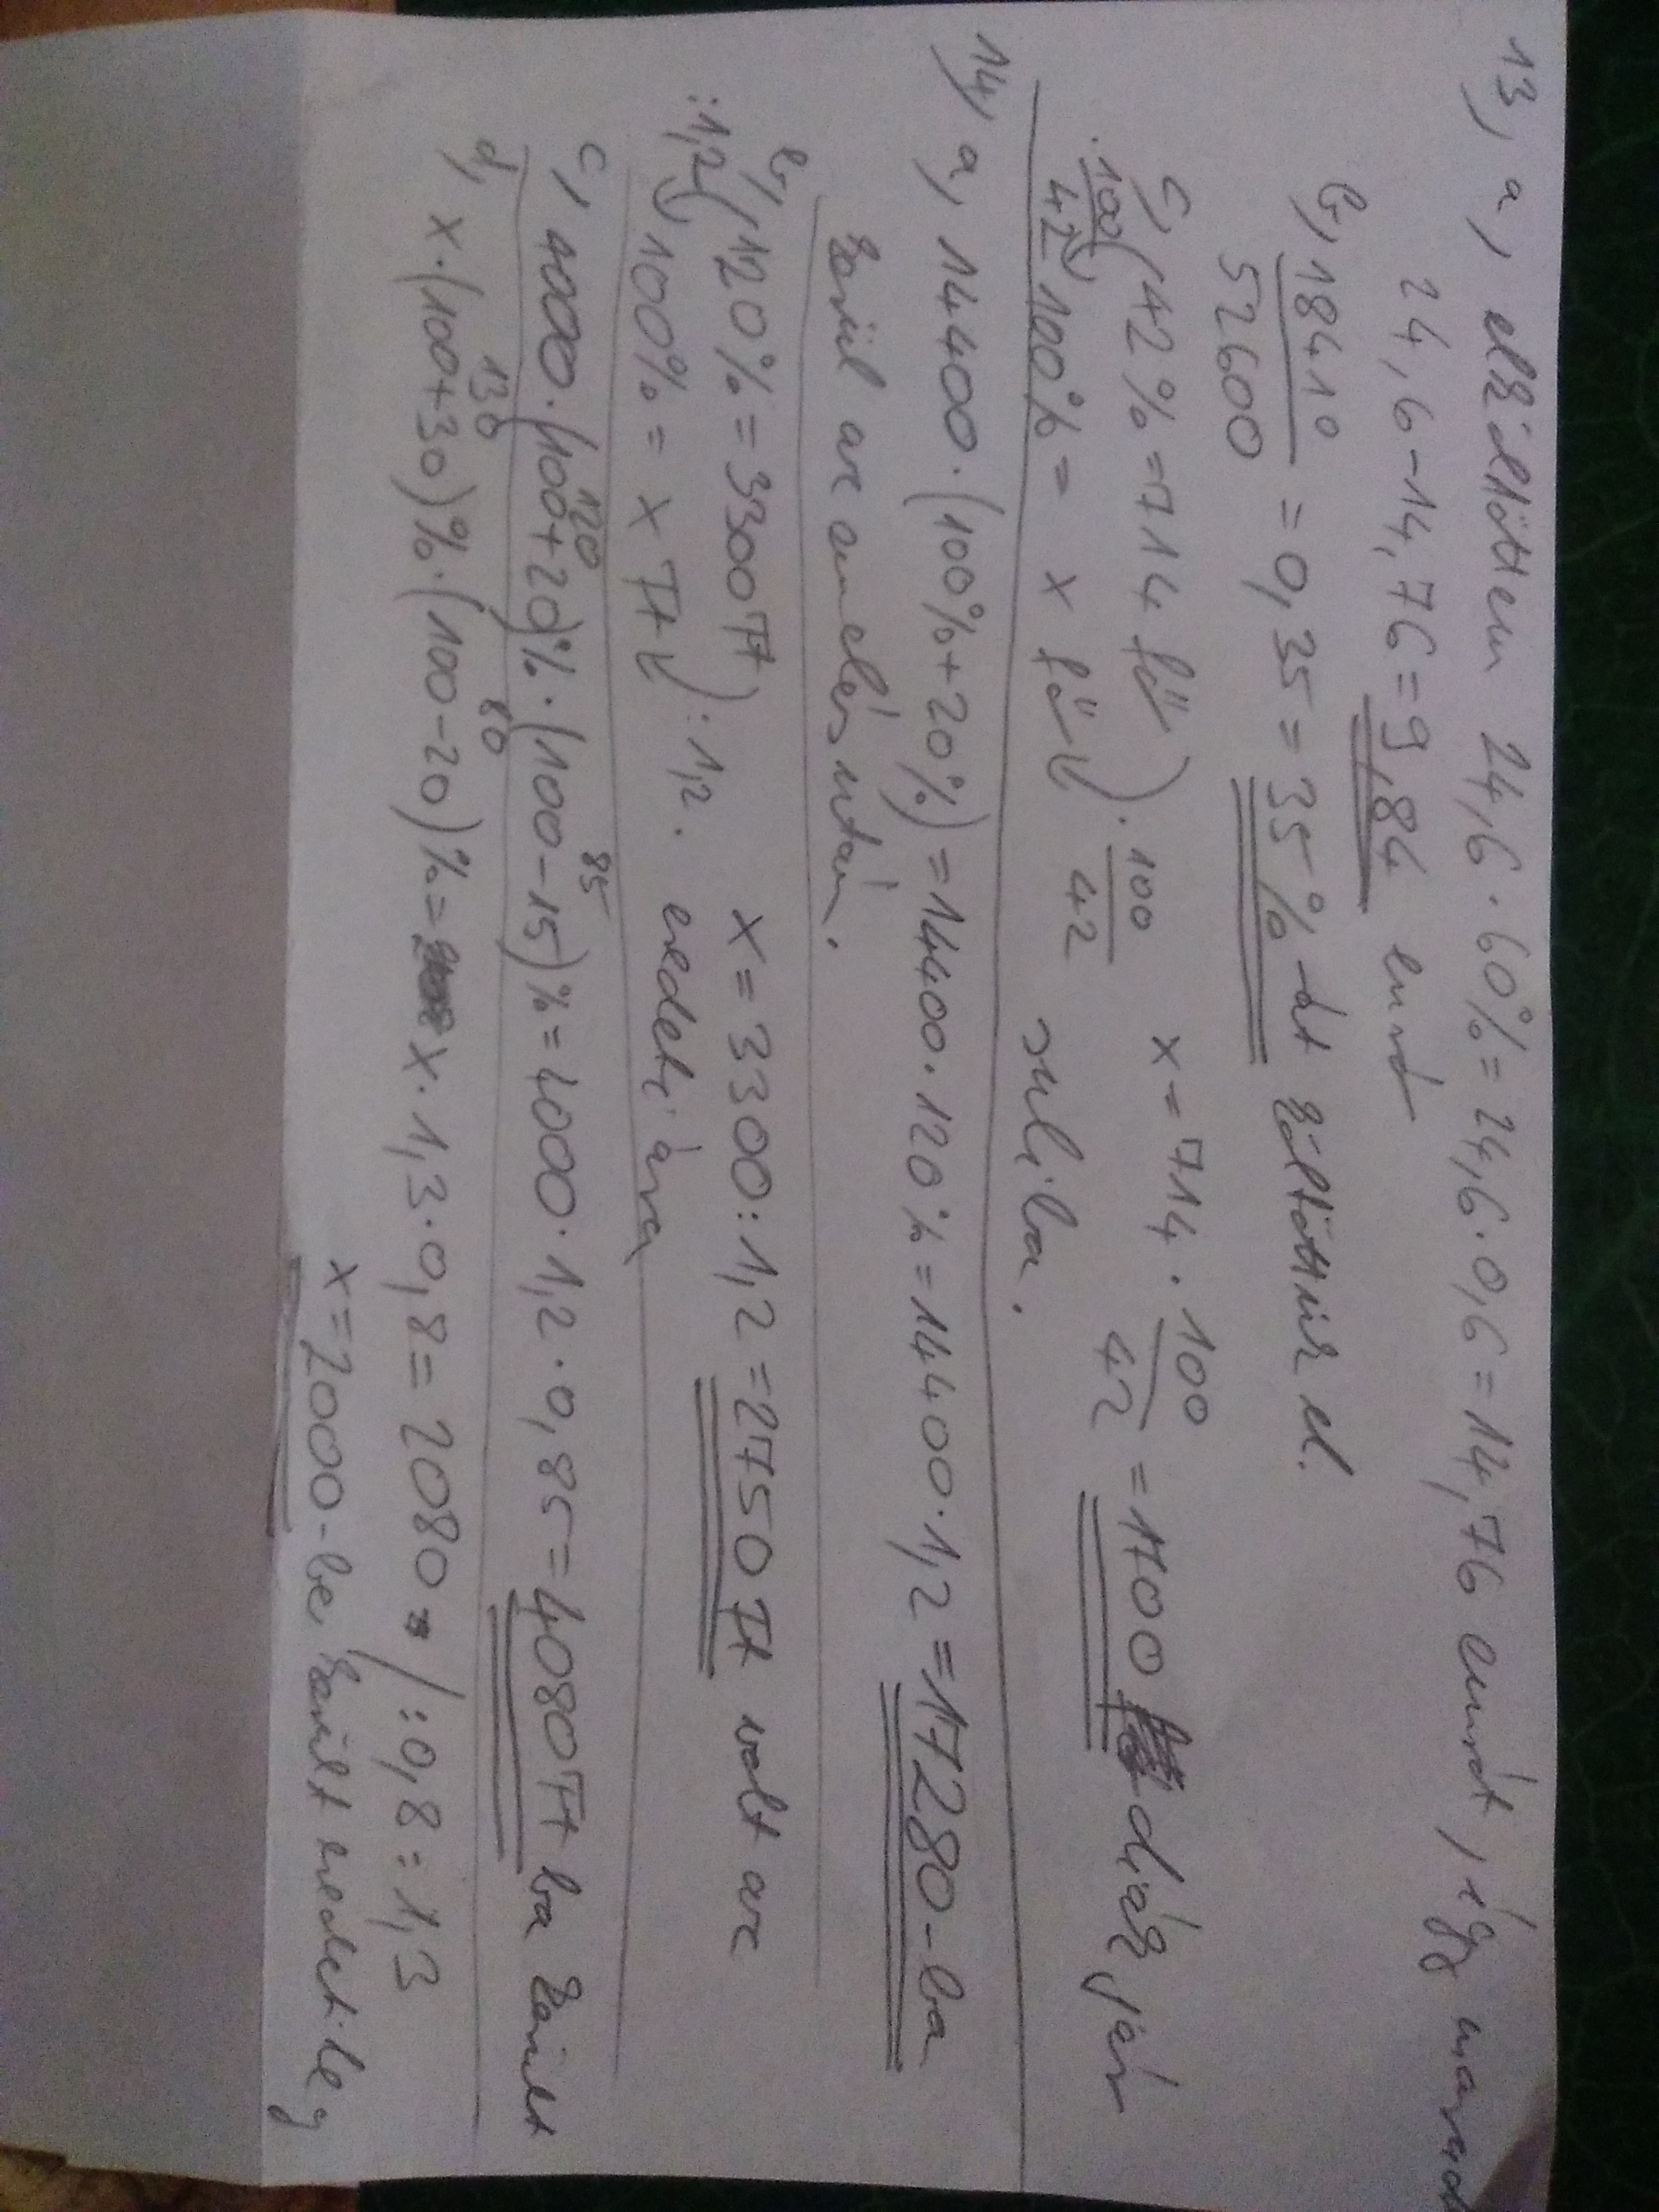 13, a, elköltöttem 24,6 · 60% = 24,6 · 0,6 = 14,76 eurót, így maradt
24,6 - 14,76 = 9,84 euró
b, 18410 / 52600 = 0,35 = 35%-át költöttük el.
c, 42% = 714 fő · 100/42 x = 714 · 100/42 = 1700 diák jár
· 100/42 100% = x fő suliba.
14, a, 14400 · (100% + 20%) = 14400 · 120% = 14400 · 1,2 = 17280-ba
került az emelés után.
b, 120% = 3300 Ft x = 3300 : 1,2 = 2750 Ft volt az
:1,2 100% = x Ft :1,2. eredeti ára
120 85
c, 4000 · (100+20)% · (100-15)% = 4000 · 1,2 · 0,85 = 4080 Ft ba került
130 80
d, x · (100+30)% · (100-20)% = x · 1,3 · 0,8 = 2080 /:0,8 :1,3
x = 2000-be került eredetileg